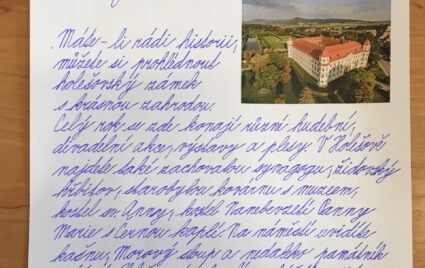 Máte-li rádi historii,
můžete si prohlédnout
holešovský zámek
s krásnou zahradou.
Celý rok se zde konají různé hudební,
divadelní akce, výstavy a plesy. V Holešově
najdete také zachovalou synagogu, židovský
hřbitov, starobylou kovárnu s muzeem,
kostel sv. Anny, kostel Nanebevzetí Panny
Marie s Černou kaplí. Na náměstí uvidíte
kašnu, Morový sloup a nedaleko památník